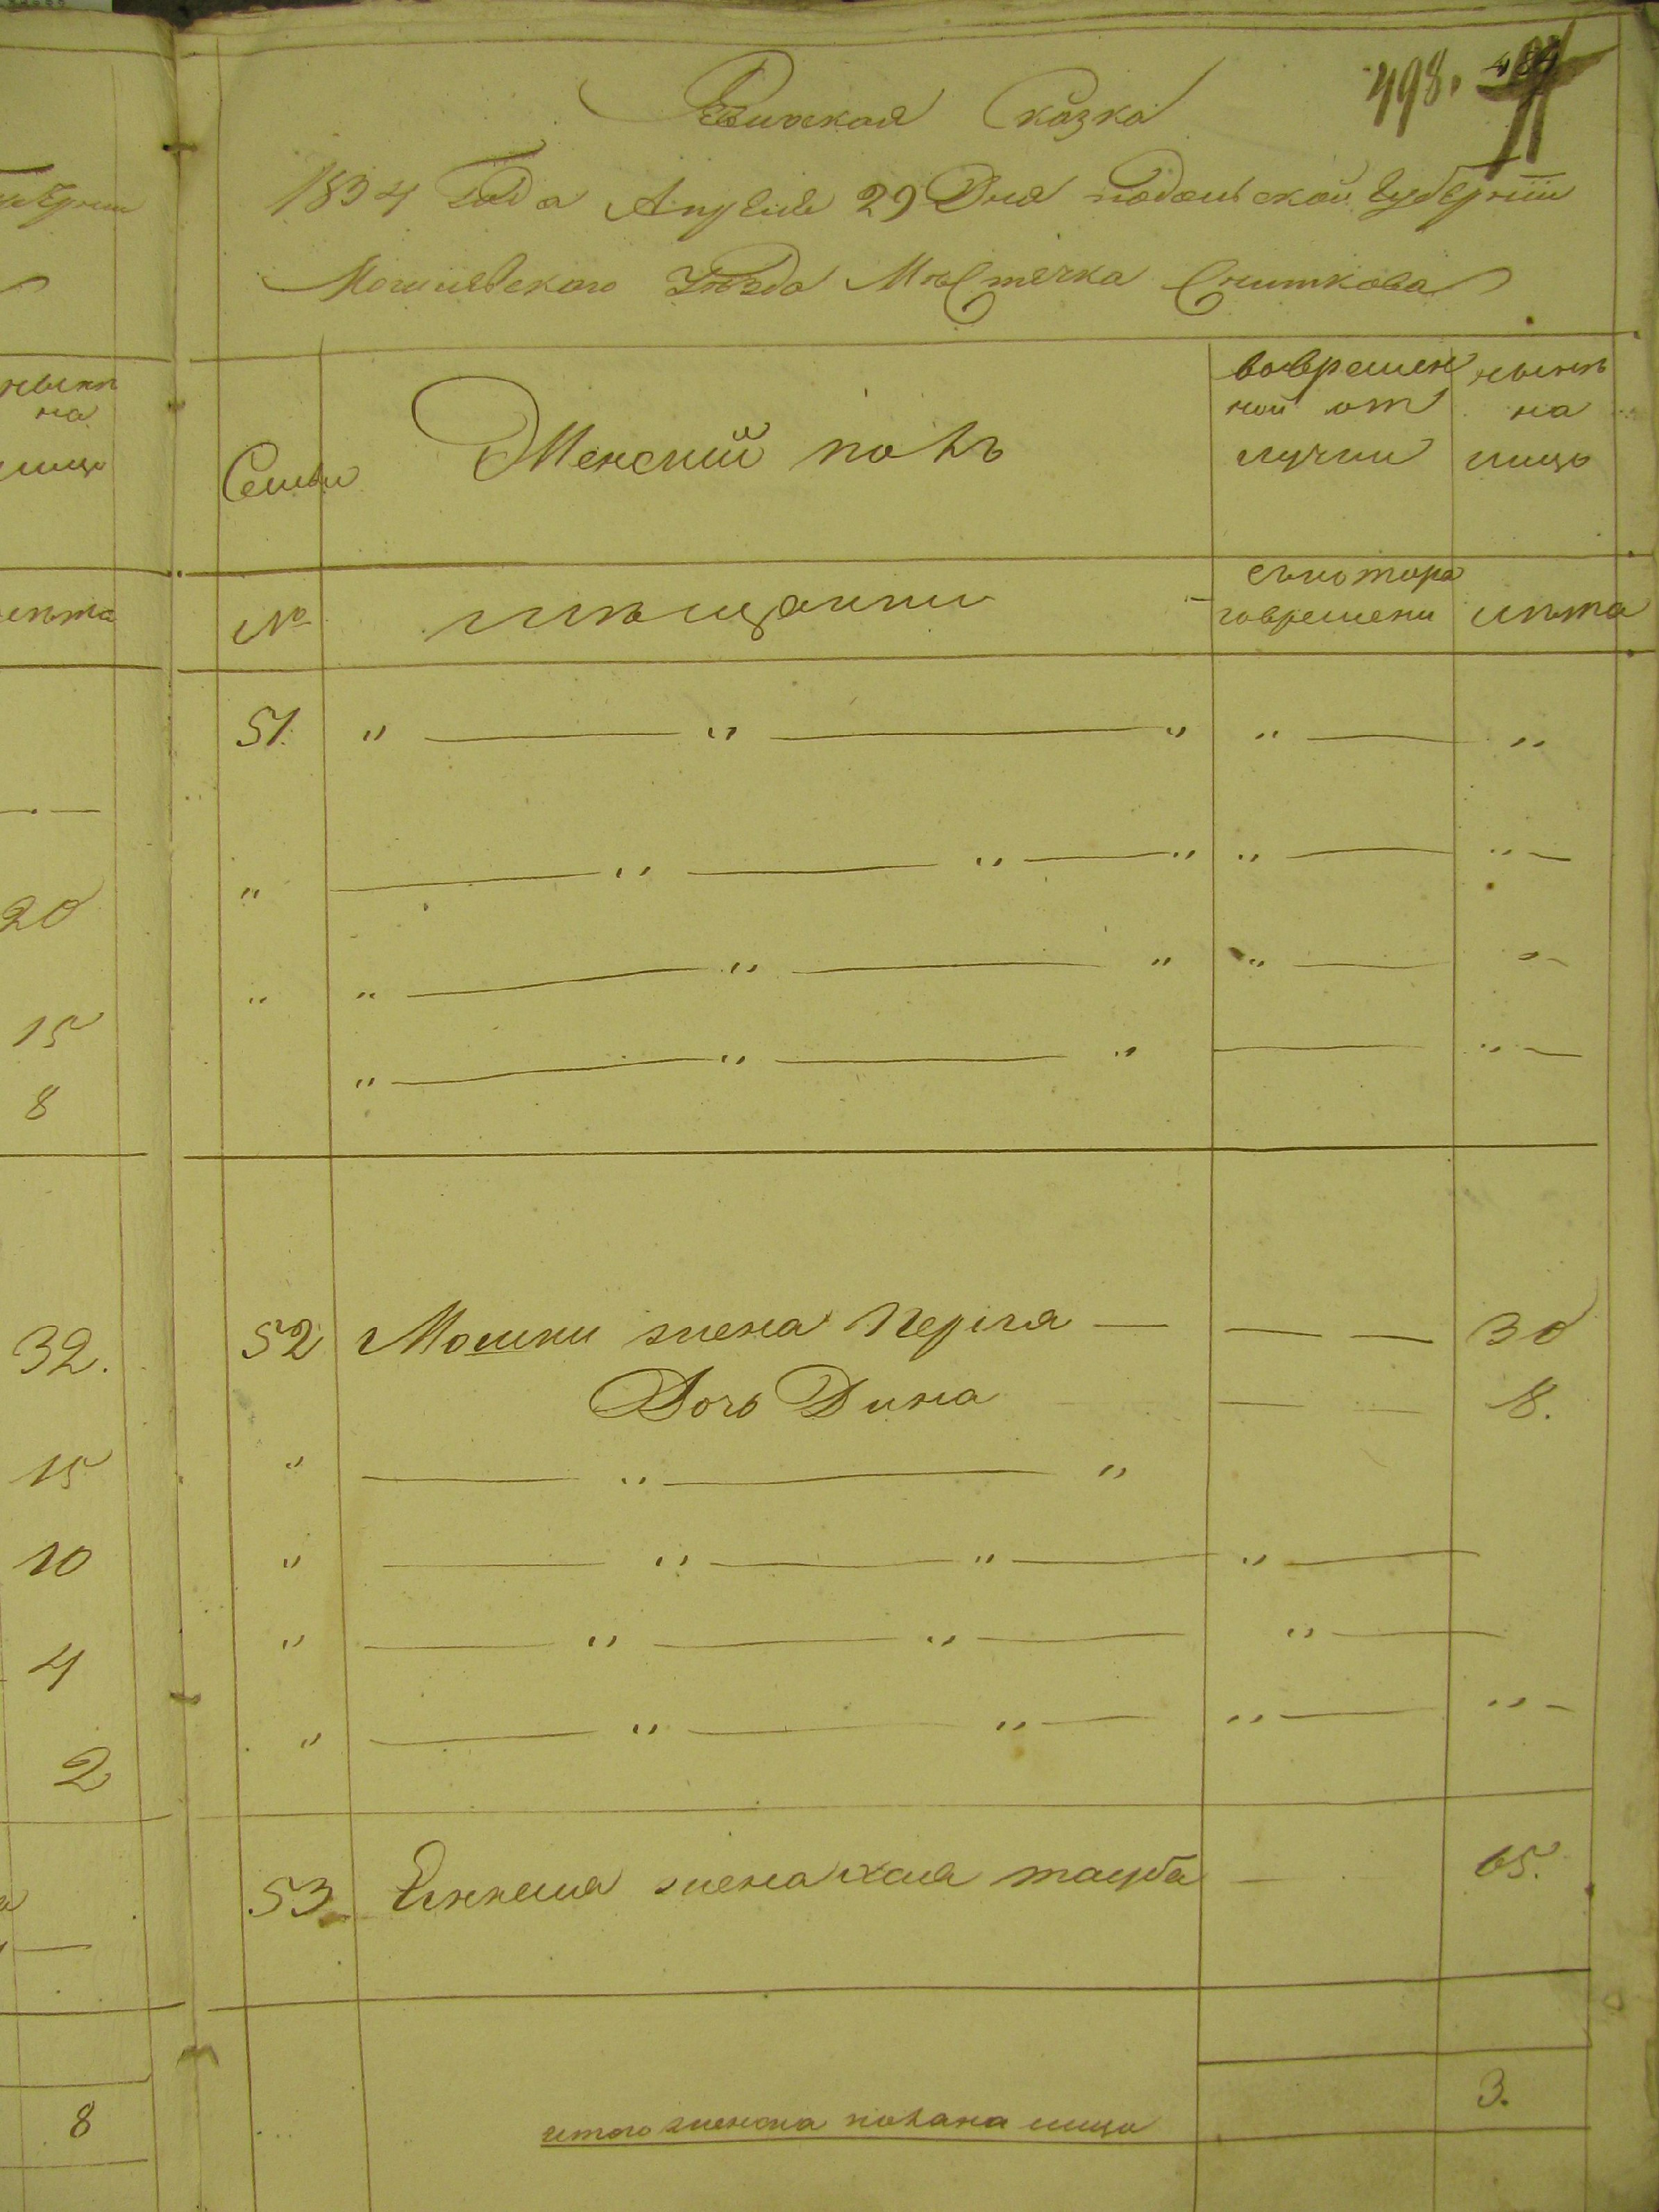 498. 484
Ревизская Сказка
1834 Года Апреля 29 Дня подольской губернии
Могилевского Уезда Мѣстечка Сниткова
Семьи
Женский полъ
вовремен
ной от
лучки
нынѣ
на
лицо
№
мѣщанки
съкотора
говремени
лѣта
51. " — " — " " — "
" — " — " " — " —
" " — " — " " — " —
" — " — " — " —
52 Мошки жена Перля — — — 30
Дочь Дина — — 8.
" — " — "
" — " — " — " —
" — " — " — " —
" — " — " — " — " —
53 жена хая тауба — 65.
итого женска пола на лицо 3.
нынѣ
на
лицо
лѣта
20
15
8
32.
15
10
4
2
8